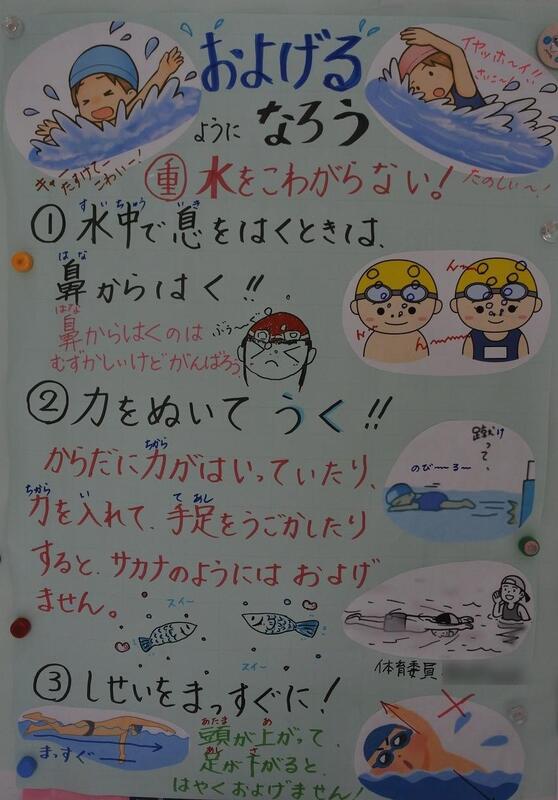 およげる
ように なろう
キャー
たすけてー
こわいー!
イヤッホ〜イ!!
さいこ〜!
たのしい〜!
重 水をこわがらない!
すいちゅう いき
① 水中で息をはくときは、
はな
鼻からはく!!
はな
鼻からはくのは
むずかしいけどがんばろう
ぶぅ〜
ん〜
ん〜
② 力をぬいて うく!!
ちから
からだに力がはいっていたり、
ちから い て あし
力を入れて、手足をうごかしたり
すると、サカナのようには およげ
ません。
蹴って、
のび〜る〜
スイ〜
スイ〜
体育委員
③ しせいをまっすぐに!
まっすぐ
あたま あ
頭が上がって、
あし さ
足が下がると、
はやくおよげません!